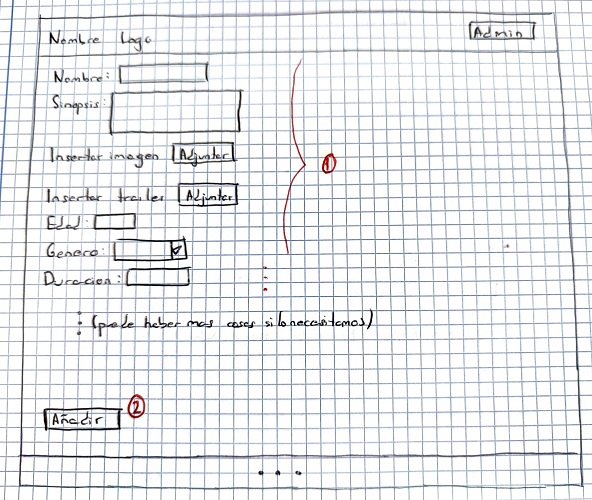 Nombre Logo
Admin
Nombre:
Sinopsis:
Insertar imagen Adjuntar
1
Insertar trailer Adjuntar
Edad:
Genero:
Duracion:
(puede haber mas cosas si lo necesitamos)
Añadir
2